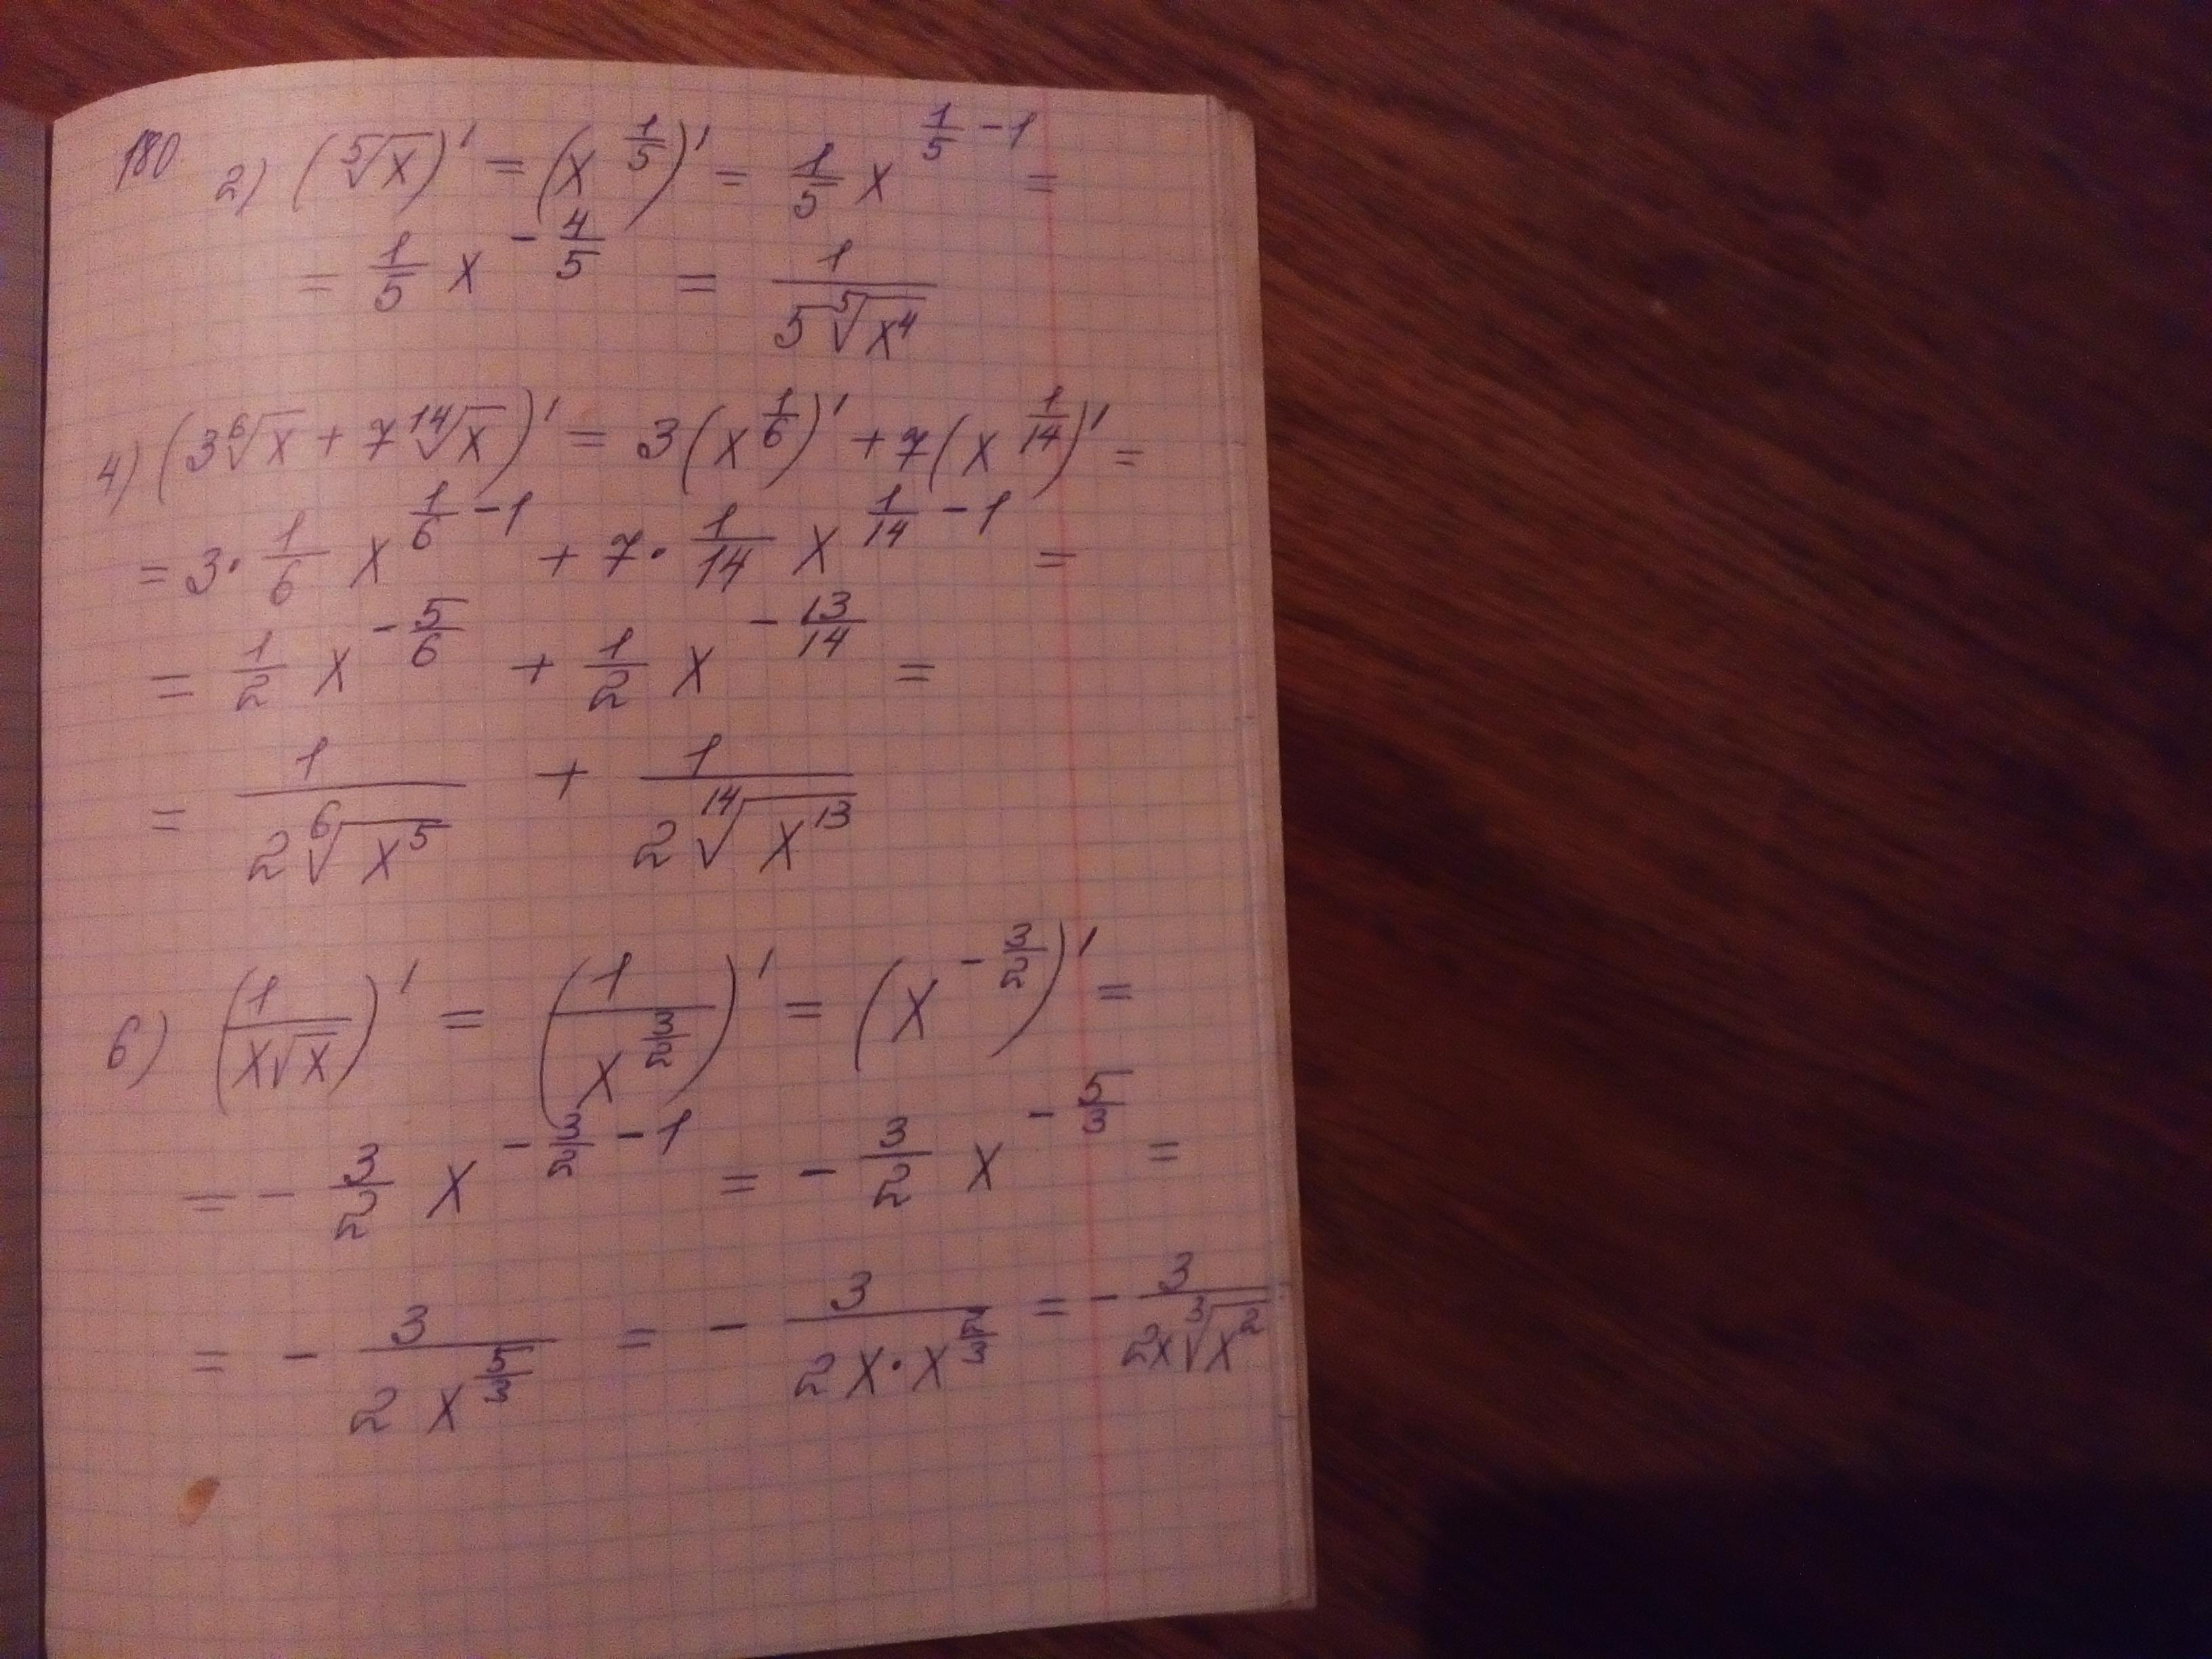 180. 2) (⁵√x)' = (x^(1/5))' = 1/5 x^(1/5 - 1) =
= 1/5 x^(-4/5) = 1/(5 ⁵√x⁴)
4) (3 ⁶√x + 7 ¹⁴√x)' = 3(x^(1/6))' + 7(x^(1/14))' =
= 3 · 1/6 x^(1/6 - 1) + 7 · 1/14 x^(1/14 - 1) =
= 1/2 x^(-5/6) + 1/2 x^(-13/14) =
= 1/(2 ⁶√x⁵) + 1/(2 ¹⁴√x¹³)
6) (1/(x√x))' = (1/x^(3/2))' = (x^(-3/2))' =
= - 3/2 x^(-3/2 - 1) = - 3/2 x^(-5/3) =
= - 3/(2 x^(5/3)) = - 3/(2x · x^(2/3)) = - 3/(2x ³√x²)